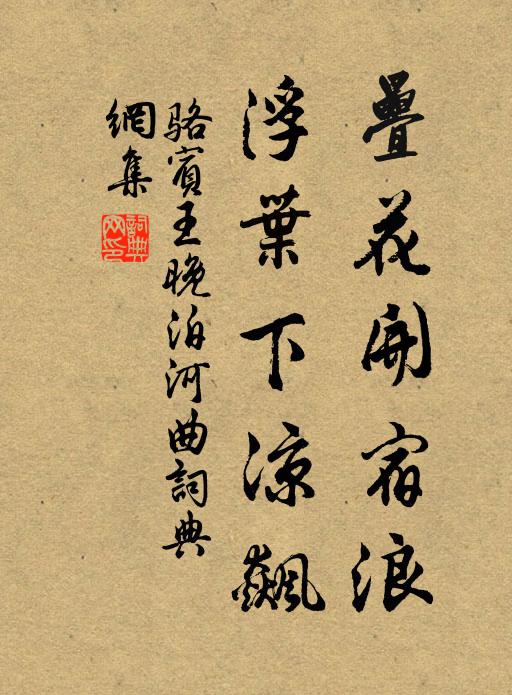 疊花開宿浪
浮葉下涼飆
駱賓王晚泊河曲詞典
網集
詞典網印